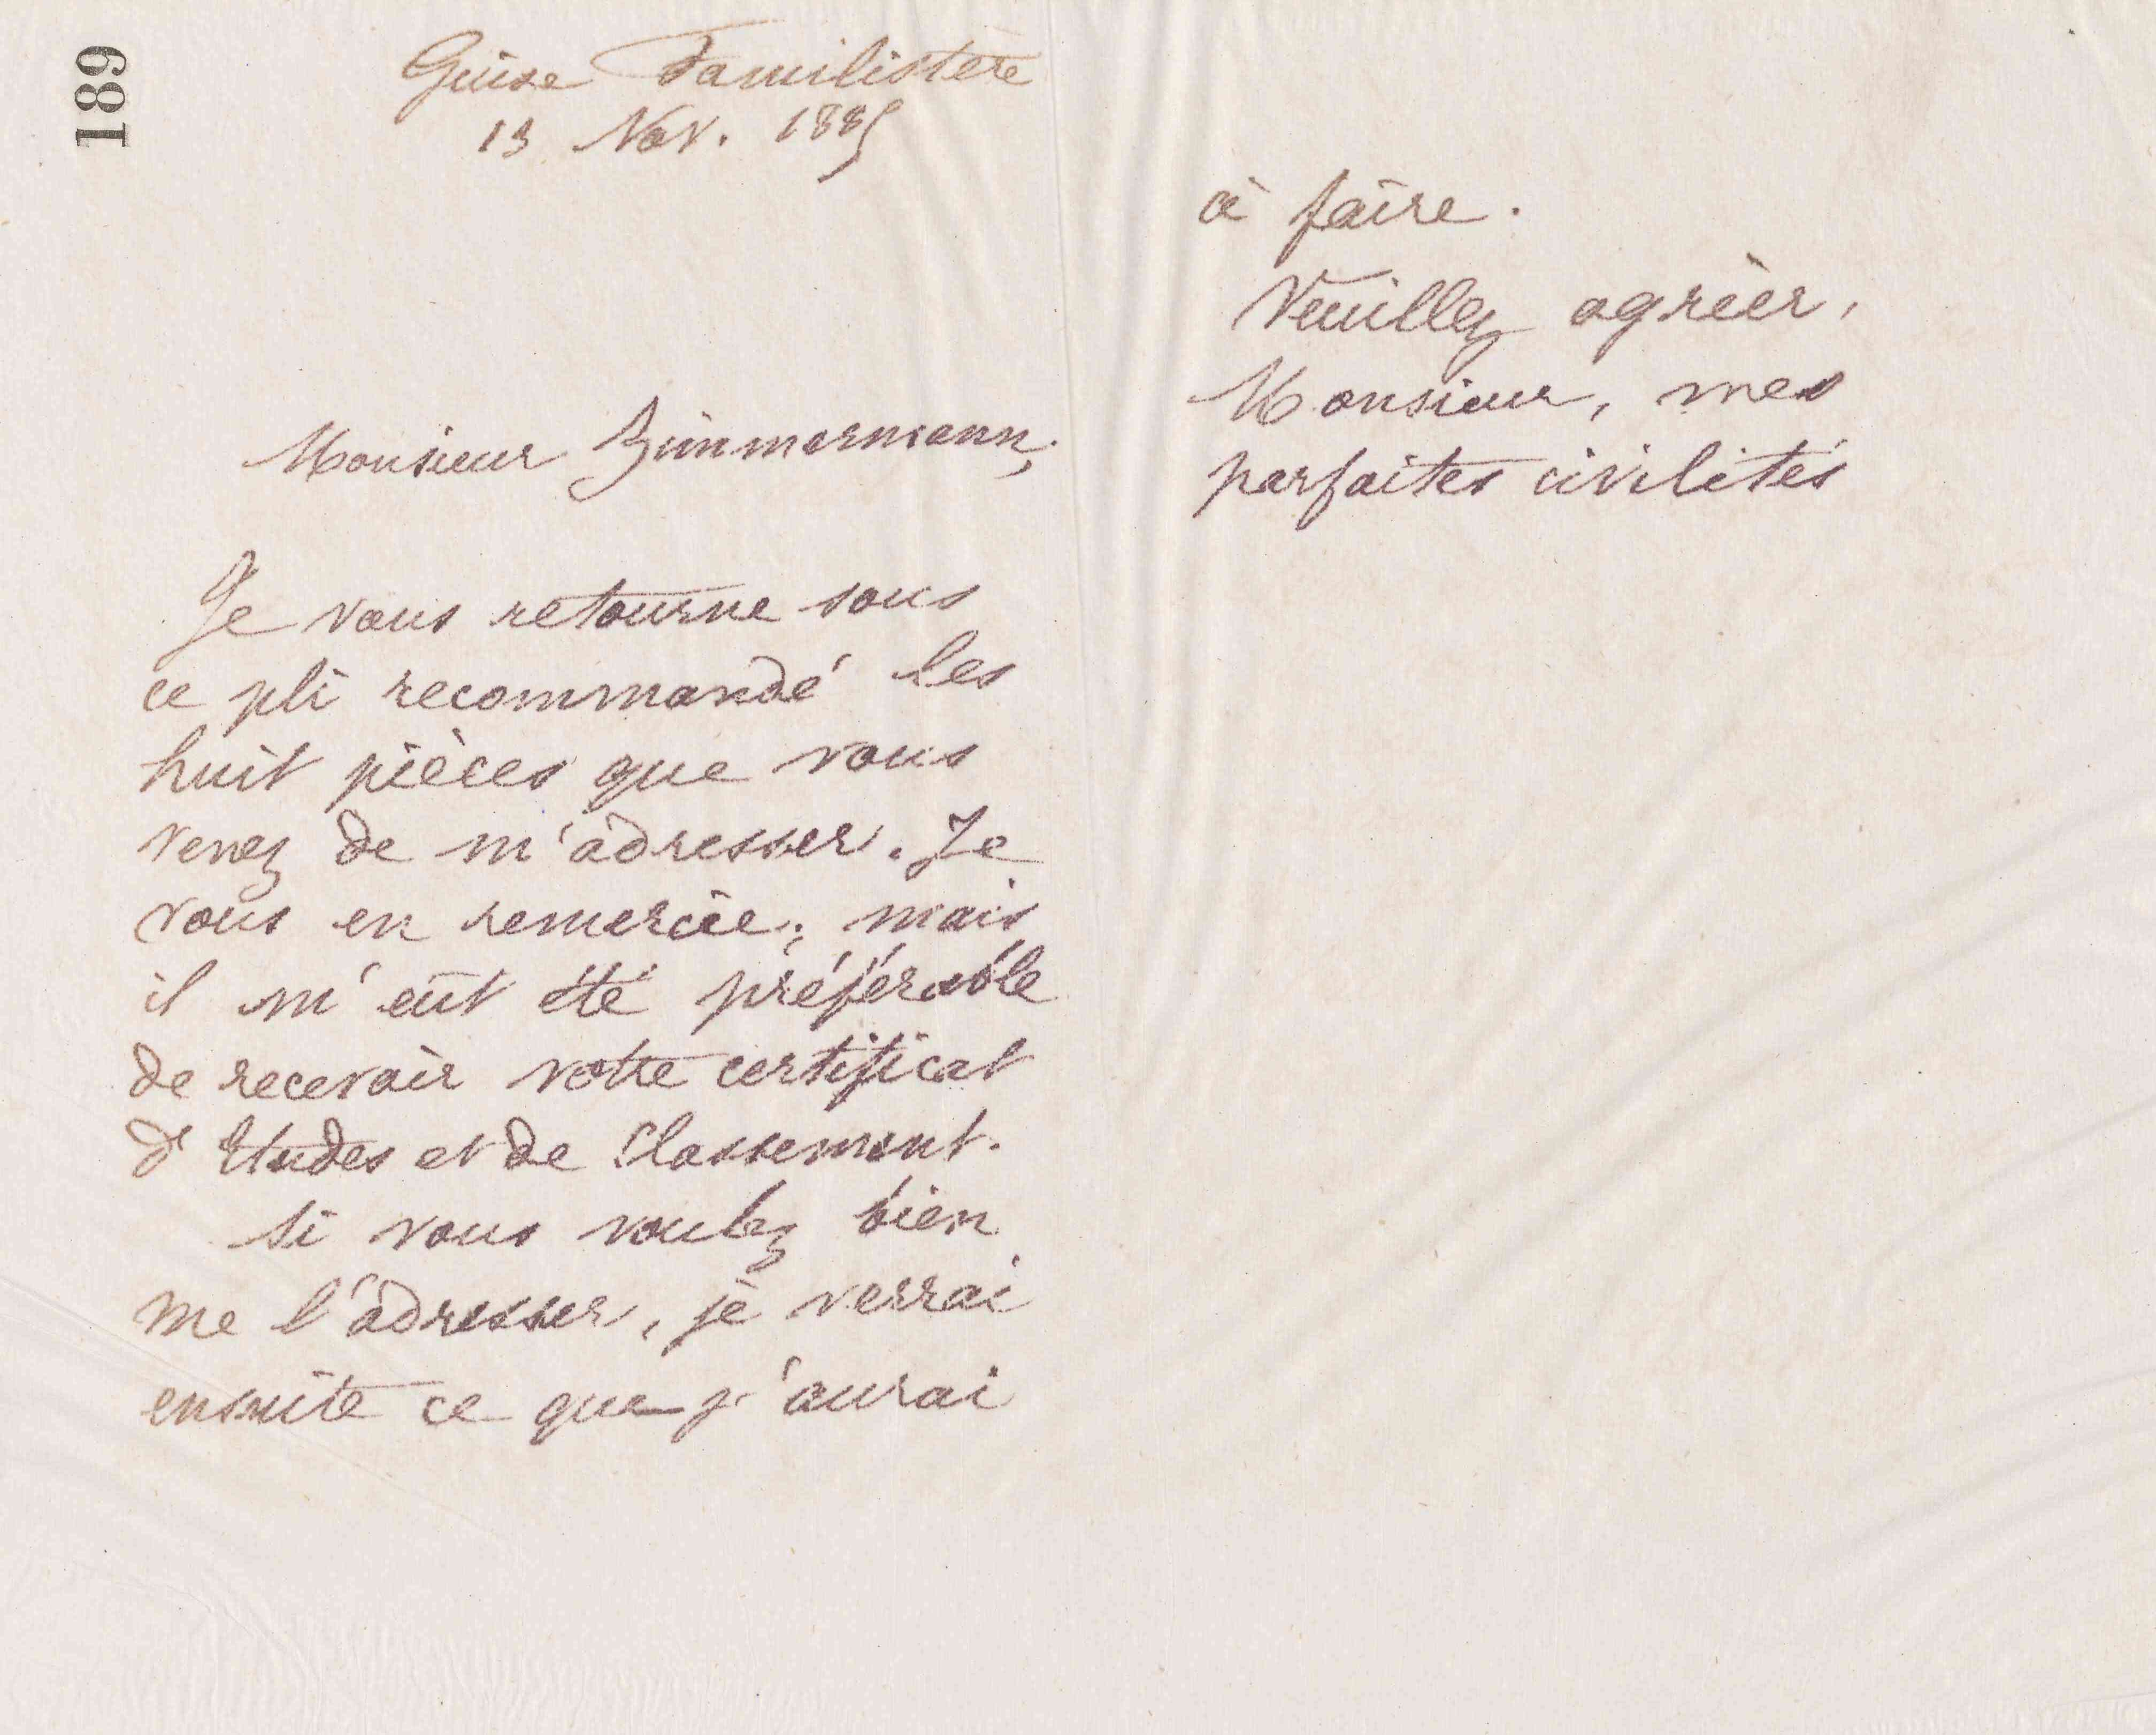 189
Guise Familistère
13 Nov. 1885
Monsieur Zimmermann,
Je vous retourne sous
ce pli recommandé les
huit pièces que vous
venez de m'adresser. Je
vous en remercie; mais
il m'eût été préférable
de recevoir votre certificat
d'Etudes et de Classement.
Si vous voulez bien
me l'adresser, je verrai
ensuite ce que j'aurai
à faire.
Veuillez agréer,
Monsieur, mes
parfaites civilités